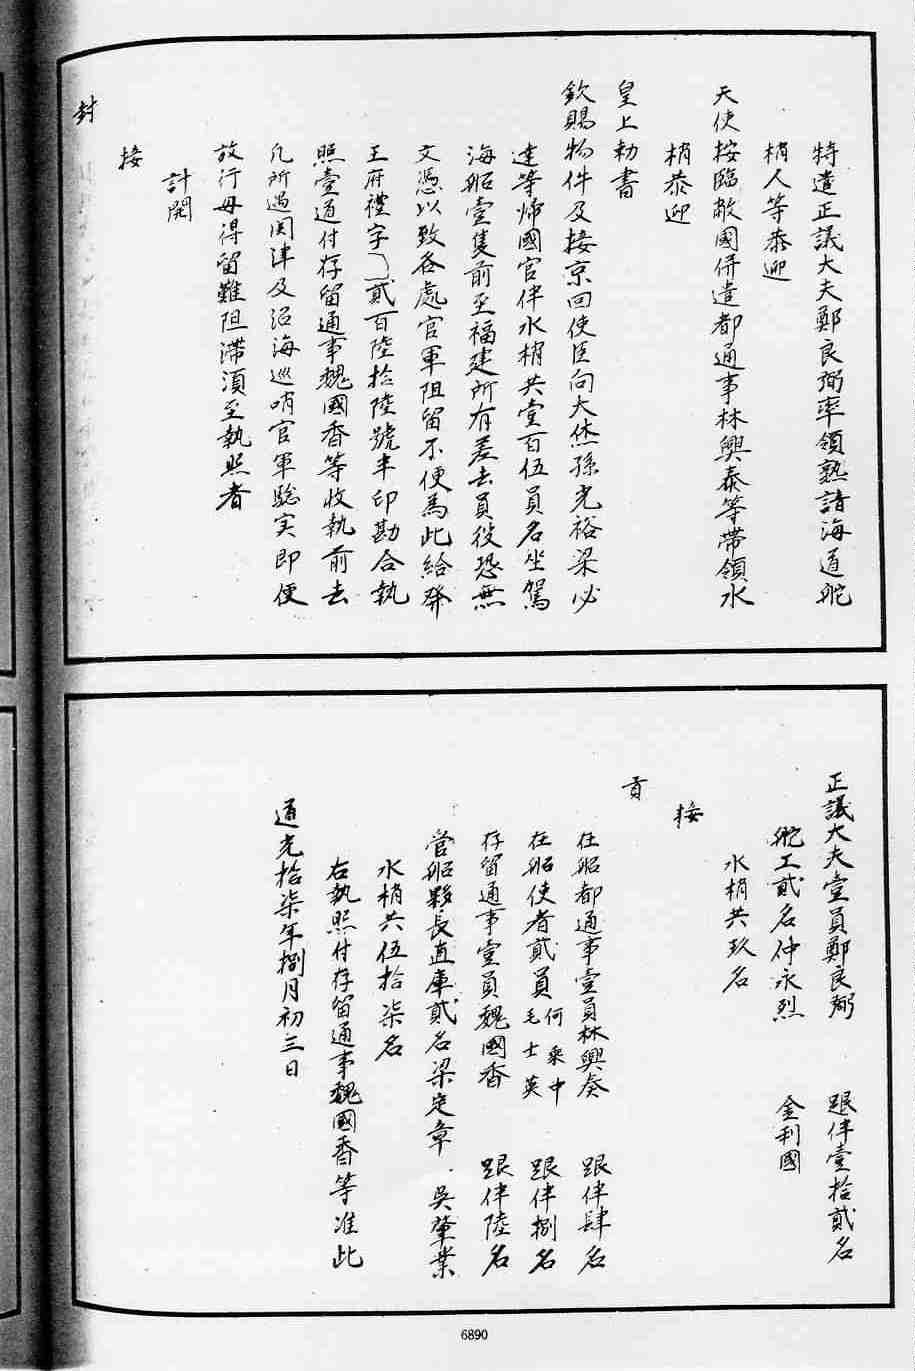 特遣正議大夫鄭良弼率領熟諳海道舵
梢人等恭迎
天使按臨敝國併遣都通事林興泰等帶領水
梢恭迎
皇上勅書
欽賜物件及接京回使臣向大烋孫光裕梁必
達等帰國官伴水梢共壹百伍員名坐駕
海船壹隻前至福建所有差去員役恐無
文憑以致各處官軍阻留不便為此給發
王府禮字貳百陸拾陸號半印勘合執
照壹道付存留通事魏國香等收執前去
凡所過関津及沿海巡哨官軍驗実即便
放行毋得留難阻滯須至執照者
計開
接
封
正議大夫壹員鄭良弼 跟伴壹拾貳名
舵工貳名仲永烈 金利國
水梢共玖名
接
貢
在船都通事壹員林興奏 跟伴肆名
在船使者貳員 何秉中 毛士英 跟伴捌名
存留通事壹員魏國香 跟伴陸名
管船夥長直庫貳名梁定章 吳肇業
水梢共伍拾柒名
右執照付存留通事魏國香等准此
道光拾柒年捌月初三日
6890